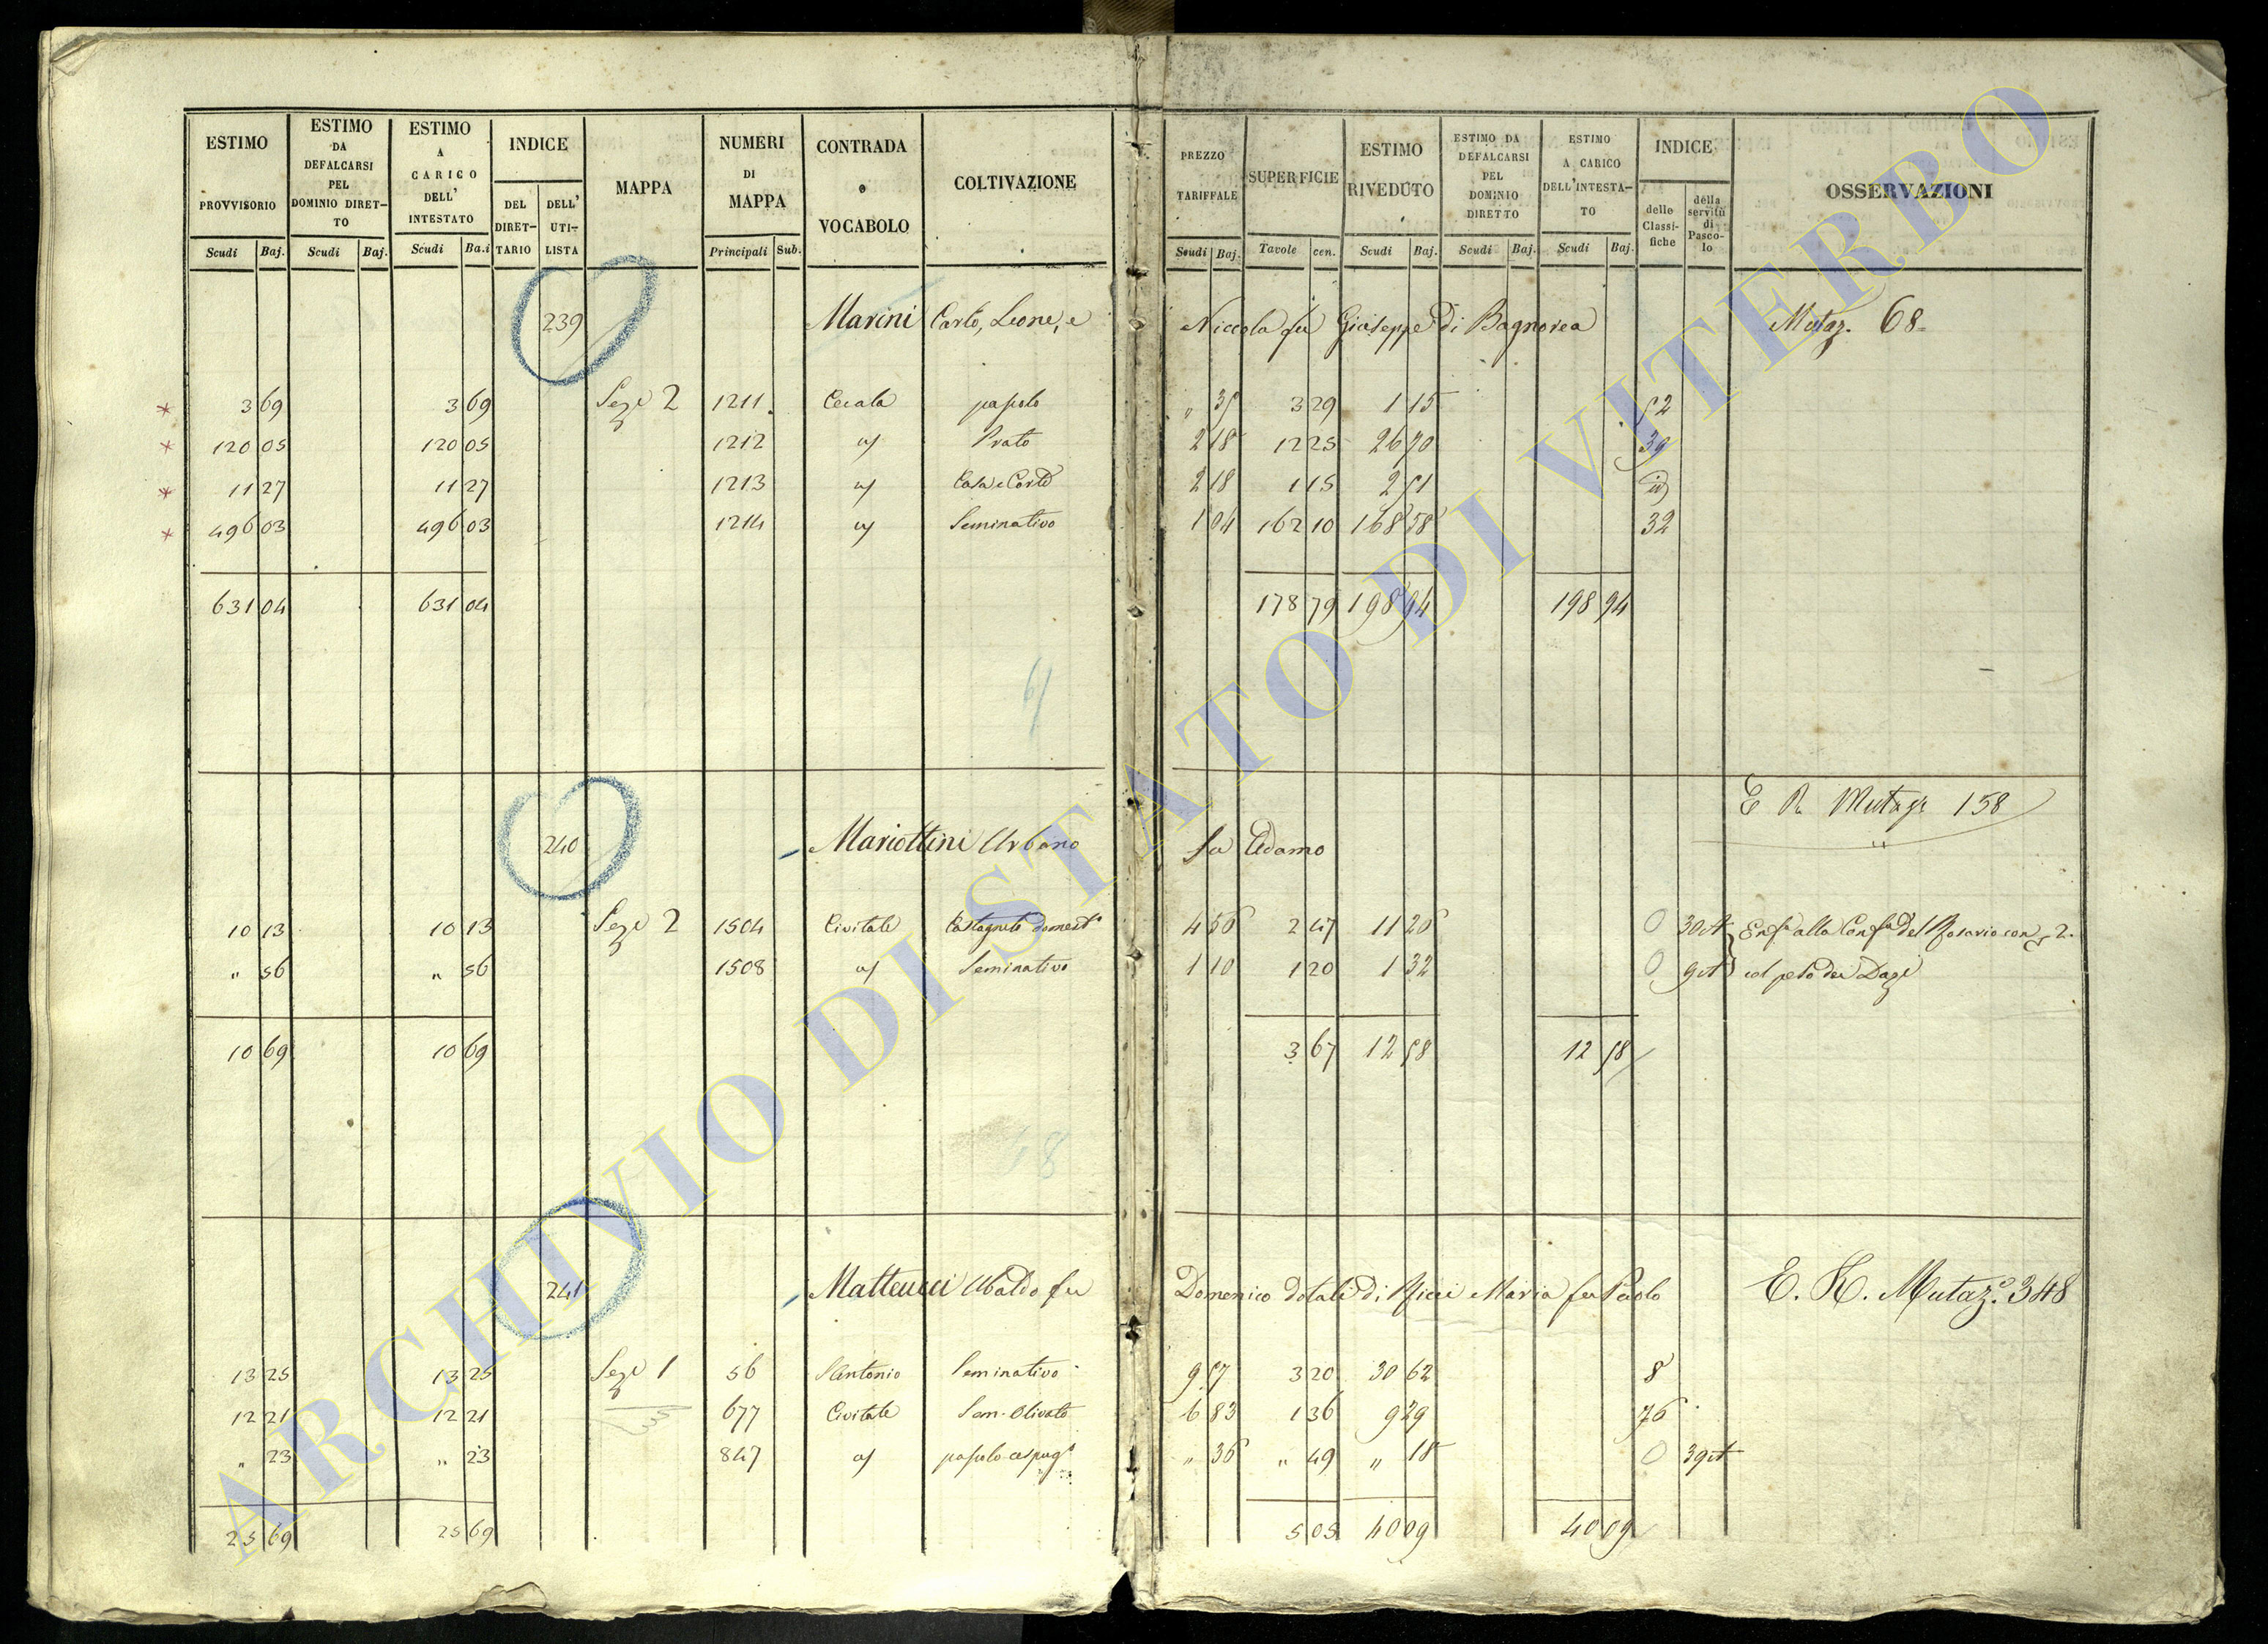 ESTIMO PROVVISORIO | ESTIMO DA DEFALCARSI PEL DOMINIO DIRETTO | ESTIMO A CARICO DELL' INTESTATO | INDICE | MAPPA | NUMERI DI MAPPA | CONTRADA o VOCABOLO | COLTIVAZIONE | PREZZO TARIFFALE | SUPERFICIE | ESTIMO RIVEDUTO | ESTIMO DA DEFALCARSI PEL DOMINIO DIRETTO | ESTIMO A CARICO DELL'INTESTATO | INDICE | OSSERVAZIONI
Scudi Baj. | Scudi Baj. | Scudi Ba.i | DEL DIRETTARIO | DELL' UTILISTA | Principali Sub. | Scudi Baj. | Tavole cen. | Scudi Baj. | Scudi Baj. | Scudi Baj. | delle Classifiche | della servitù di Pascolo
239 Marini Carlo, Leone, e Niccola fu Giuseppe di Bagnorea Mutaz. 68
3 69 3 69 Sez 2 1211 Cecala pascolo " 35 3 29 1 15 52
120 05 120 05 1212 Prato 2 18 12 25 26 70 39
11 27 11 27 1213 Casa e Corte 2 18 1 15 2 51 id
496 03 496 03 1214 Seminativo 1 04 162 10 168 58 32
631 04 631 04 178 79 198 94 198 94
E R Mutaz 158
240 Mariottini Urbano fu Adamo
10 13 10 13 Sez 2 1504 Civitale Castagneto domest 4 56 2 47 11 26 0 30 Enf alla Conf del Rosario con 2.
" 56 " 56 1508 Seminativo 1 10 1 20 1 32 0 9 col peso dei Dazi
10 69 10 69 3 67 12 58 12 58
241 Matteucci Ubaldo fu Domenico dotale di Ricci Maria fu Paolo E. R. Mutaz. 348
13 25 13 25 Sez 1 56 S Antonio Seminativo 9 57 3 20 30 62 8
12 21 12 21 677 Civitale Sem. Olivato 6 83 1 36 9 29 76
" 23 " 23 847 pascolo cespug " 36 " 49 " 18 0 39
25 69 25 69 5 05 40 09 40 09
ARCHIVIO DI STATO DI VITERBO